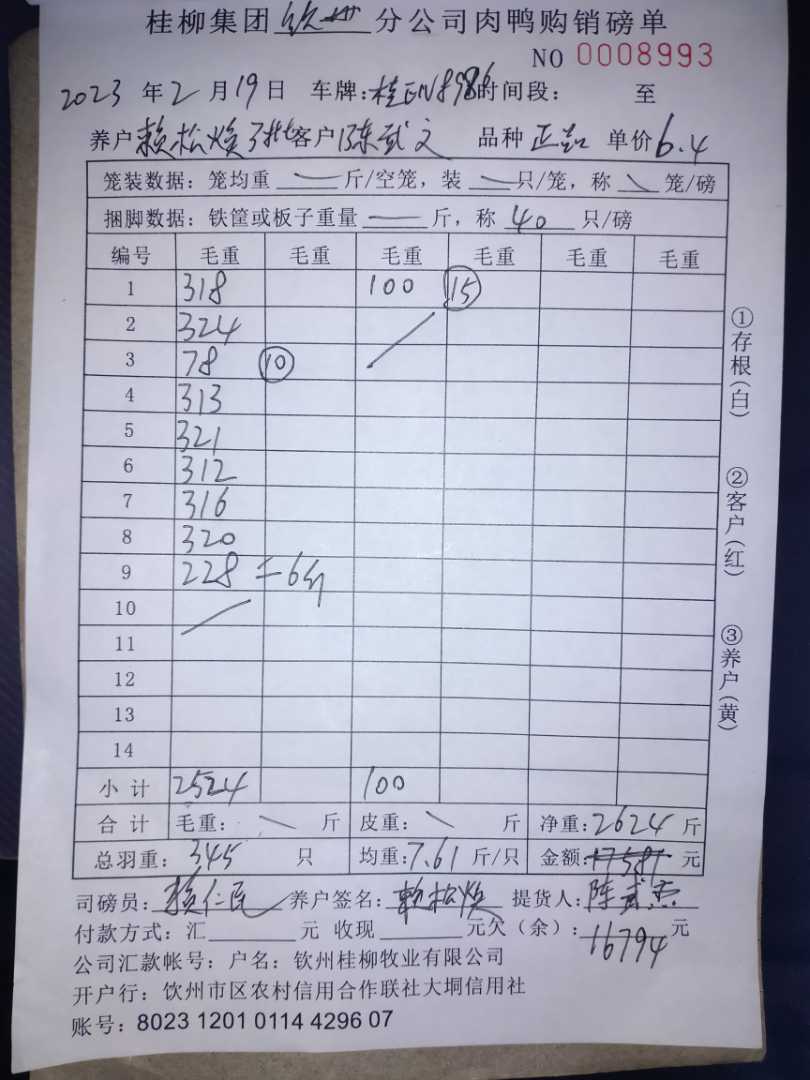 桂柳集团钦州分公司肉鸭购销磅单
NO 0008993
2023年2月19日 车牌:桂EN8986时间段: 至
养户赖松焕 客户陈武文 品种 单价6.4
笼装数据：笼均重 斤/空笼，装 只/笼，称 笼/磅
捆脚数据：铁筐或板子重量 斤，称 40 只/磅
编号 毛重 毛重 毛重 毛重 毛重 毛重
1 318 100 15
2 324
3 78 10
4 313
5 321
6 312
7 316
8 320
9 228 =6
10
11
12
13
14
小计 2524 100
合计 毛重： 斤 皮重： 斤 净重：2624 斤
总羽重：345 只 均重：7.61 斤/只 金额：17581 元
司磅员：赖仁民 养户签名：赖松焕 提货人：陈武杰
付款方式：汇 元 收现 元欠（余）：16794 元
公司汇款帐号：户名：钦州桂柳牧业有限公司
开户行：饮州市区农村信用合作联社大垌信用社
账号：8023 1201 0114 4296 07
①存根（白）
②客户（红）
③养户（黄）